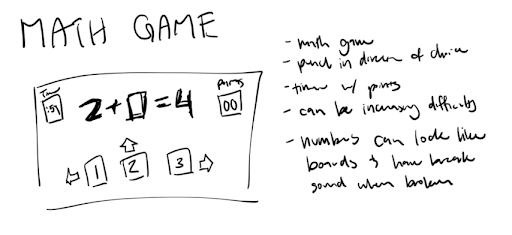 MATH GAME
Time
:59
2+□=4
Points
00
1 2 3
- math game
- punch in direction of choice
- timer w/ points
- can be increasing difficulty
- numbers can look like
boards & have break
sound when broken